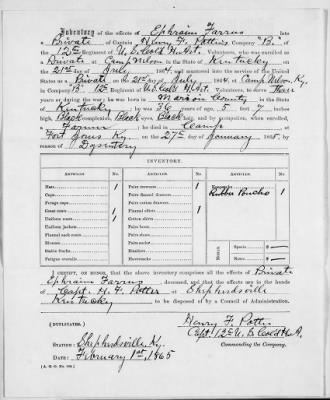 Inventory of the effects of Ephraim Farris
Private of Captain Henry F. Potter's Company "B," of the
12th Regiment of U.S. Cold H. Art. Volunteers, who was enrolled as a
Private at Camp Nelson in the State of Kentucky on the
21st day of July, 1864, and mustered into the service of the United
States as a Private on the 21st day of July, 1864, at Camp Nelson, Ky.
in Company "B," 12th Regiment of U.S. Cold H. Art. Volunteers, to serve Three
years or during the war; he was born in Marion County in the State
of Kentucky; he was 36 years of age, 5 feet 7 inches
high, Black complexion, Black eyes, Black hair, and by occupation, when enrolled,
a Farmer; he died in Camp at
Fort Jones Ky. on the 27th day of January, 1865, by
reason of Dysentery
INVENTORY.
ARTICLES. ARTICLES. ARTICLES.
Hats, 1
Caps,
Forage caps,
Great coats 1
Uniform coats 1
Uniform jackets
Flannel sack coats
Blouses
Stable frocks
Fatigue overalls
Pairs trowsers, 1
Pairs flannel drawers
Cotton drawers
Flannel shirts 1
Cotton shirts
Pairs shoes
Pairs socks
Blankets
Haversacks
Rubber Poncho 1
MONEY. Specie $
Notes $
I CERTIFY, ON HONOR, that the above inventory comprises all the effects of Private
Ephraim Farris, deceased, and that the effects are in the hands
of Capt. H. F. Potter at Shepherdsville
Kentucky to be disposed of by a Council of Administration.
(DUPLICATES.)
Henry F. Potter
Capt 12 U.S. Cold H.A.
Commanding the Company.
STATION: Shepherdsville, Ky.
DATE: February 1st, 1865